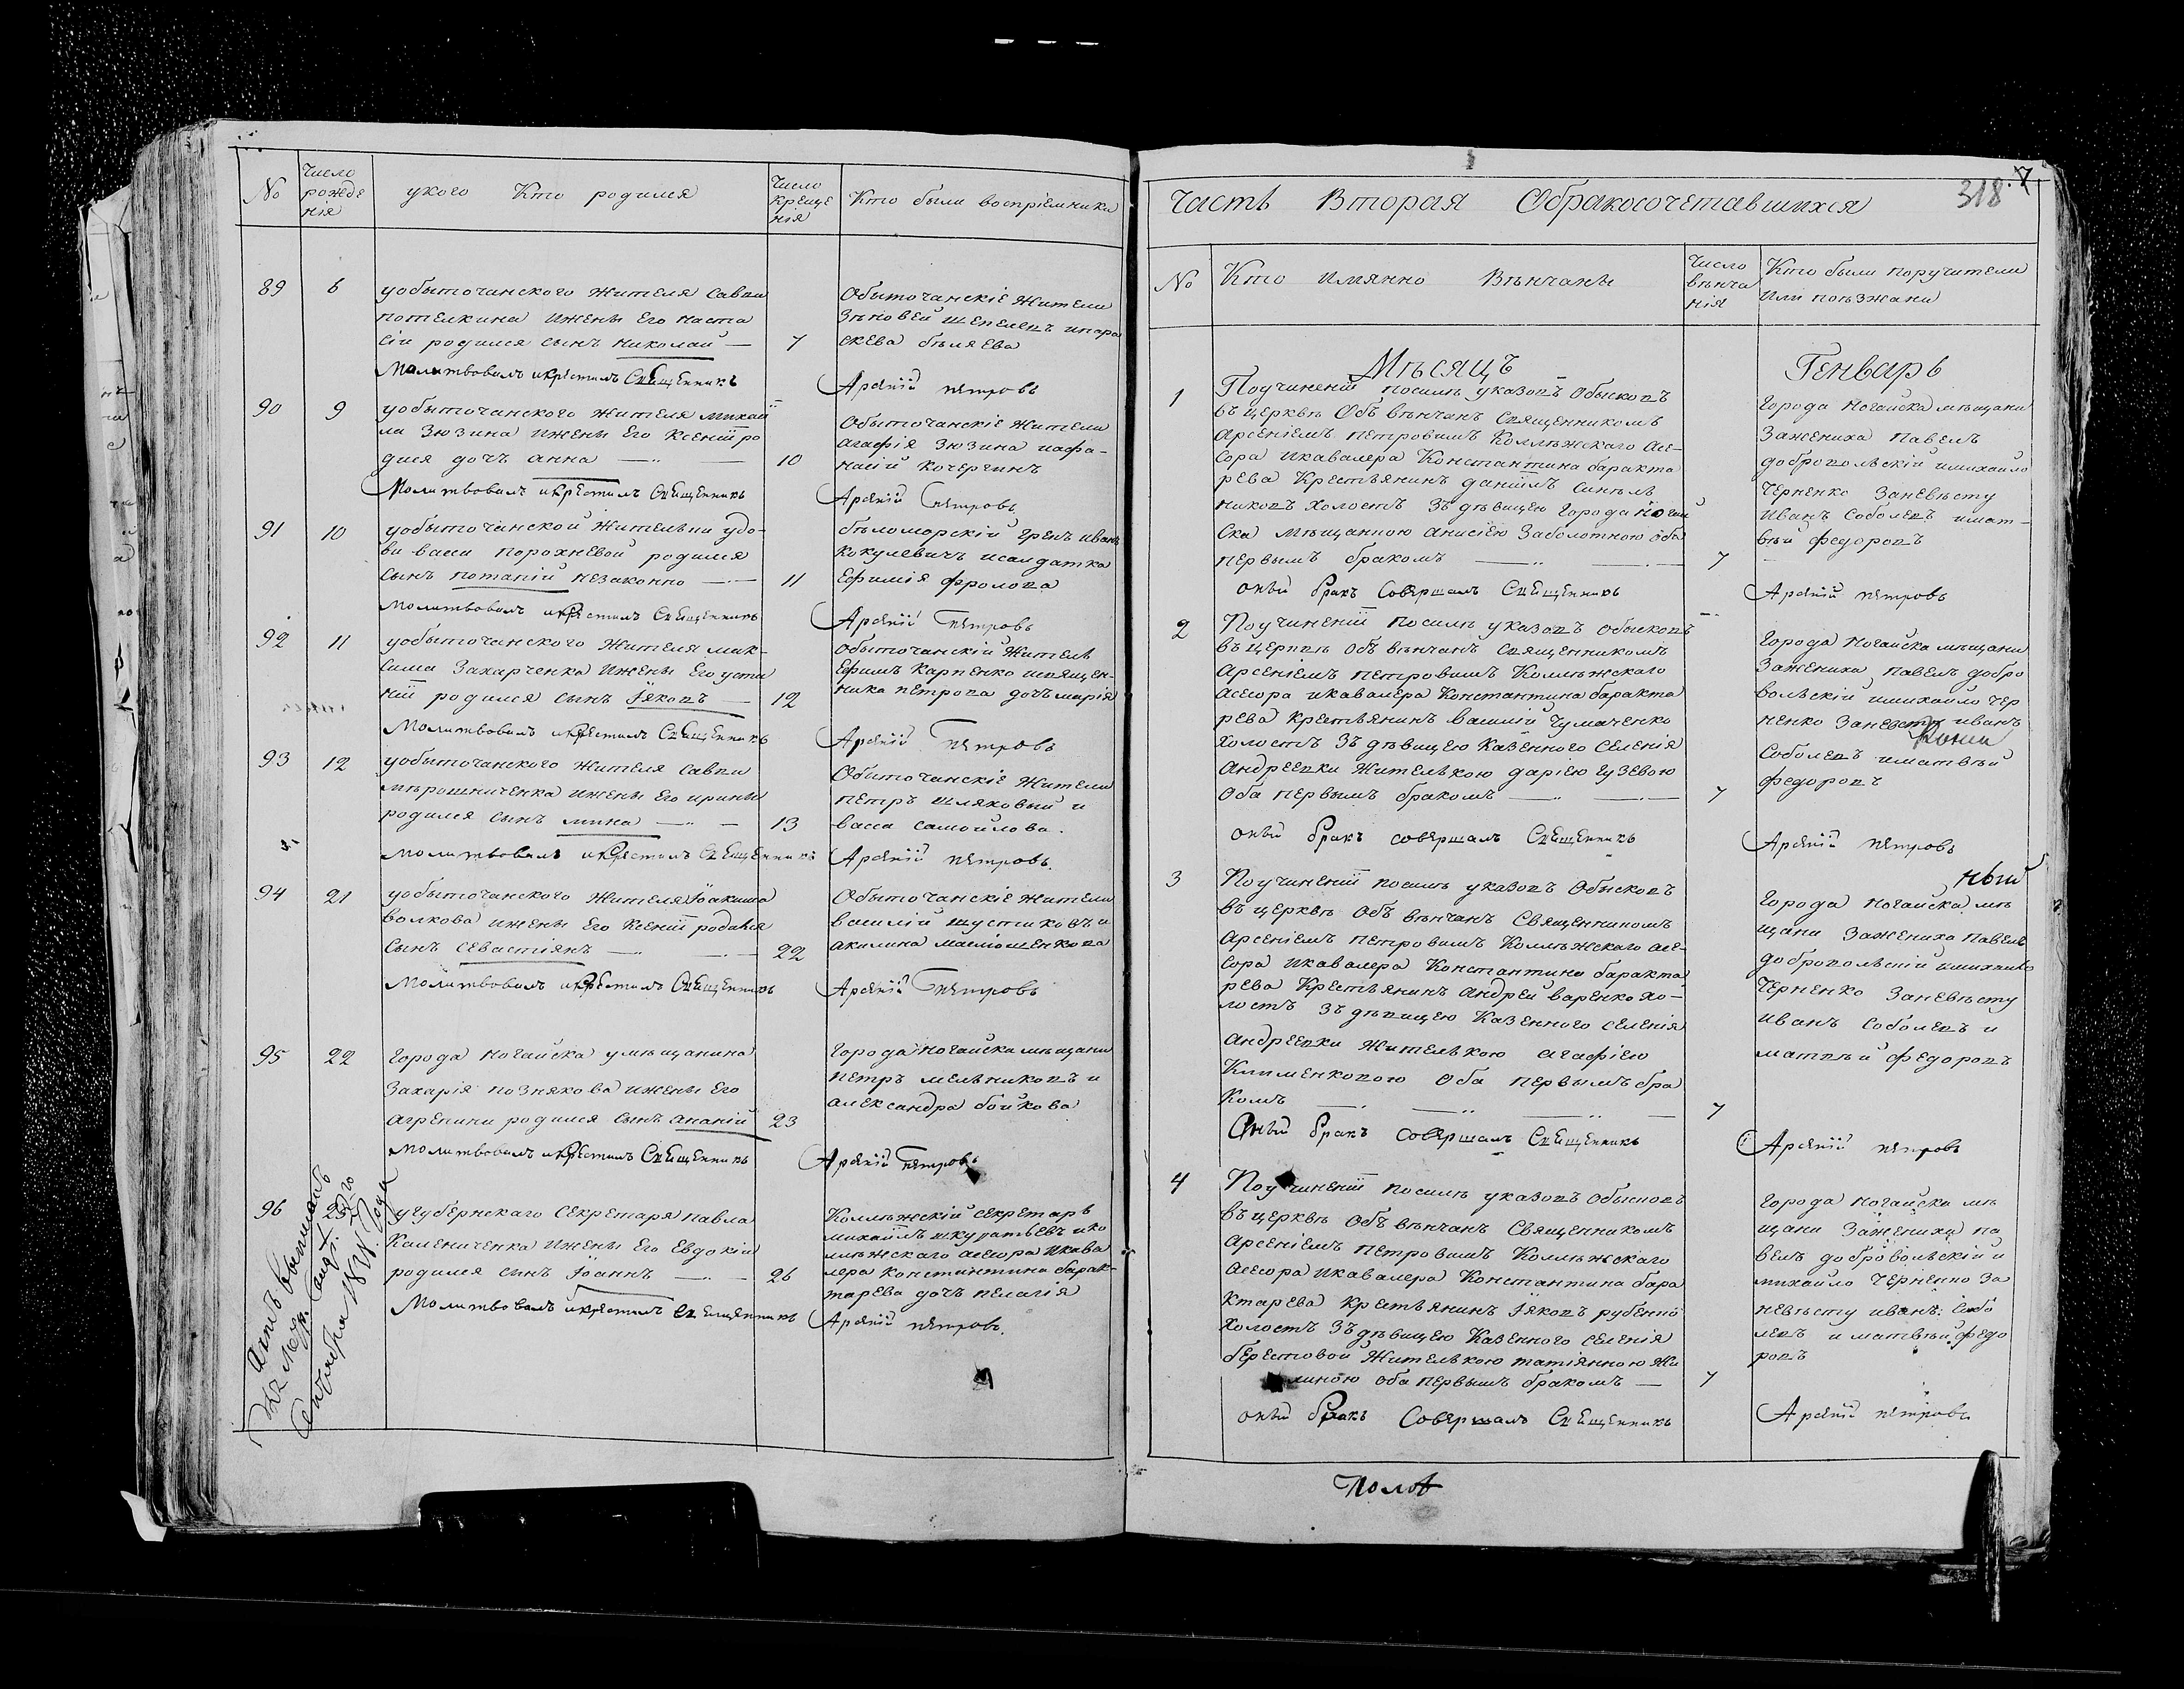 No
Число
рожде
нія
укого Кто родился
Число
Креще
нія
Кто были воспріемники
89
6
уобыточанского жителя Саввы
потемкина ижены Его наста
сіи родился сынъ николай
7
Обыточанскіе жители
Зѣновей шепелевъ ипара
скева бѣляева
Молитвовалъ икрестилъ Священникъ
Арсеній петровъ
90
9
уобыточанского жителя михаи
ла Зюзина ижены Его Ксеніи ро
дися дочъ анна
10
Обыточанскіе жители
агафія Зюзина иафа-
насій Кочергинъ
Молитвовалъ икрестилъ Священникъ
Арсеній Петровъ
91
10
уобыточанской жительни удо-
ви васы порохневой родился
сынъ потапій незаконно
11
бѣломорскій Грекъ иванъ
Кокулевичъ исалдатка
Ефимія фролова
Молитвовалъ икрестилъ Священникъ
Арсеній Петровъ
92
11
уобыточанского жителя мак-
сима Захарченка ижены Его усти
ніи родился сынъ Іяковъ
12
Обыточанскій житель
Ефимъ Карпенко исвящен-
ника петрова дочъ марія
Молитвовалъ икрестилъ Священникъ
Арсеній Петровъ
93
12
уобыточанского жителя Саввы
мѣрошниченка ижены Его ирины
родился сынъ мина
13
Обыточанскіе жители
петръ шляховый и
васса самойлова.
Молитвовалъ икрестилъ Священникъ
Арсеній петровъ.
94
21
уобыточанского жителя Іоакима
волкова ижены Его Ксеніи родился
сынъ Севастіянъ
22
Обыточанскіе жители
василій шустиковъ и
акилина
Молитвовалъ икрестилъ Священникъ
Арсеній Петровъ
95
22
Города ногайска умѣщанина
Захарія познякова ижены Его
агрепини родился сынъ ананій
23
Города ногайска мѣщани
петръ мельниковъ и
александра бойкова
Молитвовалъ икрестилъ Священникъ
Арсеній Петровъ
96
23
угубернскаго Секретаря павла
Калениченка ижены Его Евдокіи
родился сынъ Іоаннъ
26
Коллѣжскій секретаръ
михаилъ шкуратьевъ ико
лѣжскаго асесора икава
лера константина барак-
тарева дочъ пелагія
Молитвовалъ икрестилъ священникъ
Арсеній петровъ.
года
Часть Вторая Обракосочетавшихся
318
7
No
Кто имянно Вѣнчаны
Число
вѣнча
нія
Кто были поручители
или поѣзжани
Мѣсяцъ Генварь
1
Поучиненіи посилѣ указовъ Обысковъ
въ церквѣ Объ вѣнчанъ Священникомъ
Арсеніемъ петровимъ Коллѣжскаго асе-
сора икавалера Константина баракта
рева Крестьянинъ даніилъ синель
никовъ холостъ зъ дѣвицею города Ногай
ска мѣщанною анисіею Заболотною оба
первымъ бракомъ
7
Города ногайска мѣщани
Зажениха павелъ
добровольскій имихайло
Черненко Заневѣсту
иванъ Соболевъ имат-
вѣй федоровъ
оный бракъ Совершалъ Священникъ
Арсеній петровъ
2
Поучиненіи посилѣ указовъ обысковъ
въ церквѣ объ вѣнчанъ священникомъ
Арсеніемъ петровимъ Коллѣжскаго
асесора икавалера Константина баракта
рева крестьянинъ василій Чумаченко
холостъ зъ дѣвицею казенного Селенія
андреевки жителькою даріею гузевою
оба первымъ бракомъ
7
Города ногайска мѣщани
Зажениха павелъ добро
вольскій имихайло чер
ненко Заневѣсту иванъ
Соболевъ иматвѣй
федоровъ
оный бракъ совершалъ Священникъ
Арсеній петровъ
3
Поучиненіи посилѣ указовъ Обысковъ
въ церквѣ объ вѣнчанъ Священникомъ
Арсеніемъ петровимъ Коллѣжскаго асе-
сора икавалера Константина баракта
рева Крестьянинъ андрей варенко хо-
лостъ зъ дѣвицею Казенного селенія
андреевки жителькою агафіею
Клименковою оба первымъ бра
Комъ
7
ный
Города ногайска мѣ
щани Зажениха Павелъ
добровольскій имихайло
Черненко Заневѣсту
иванъ Соболевъ и
матвѣй федоровъ
Оный бракъ совершалъ Священникъ
Арсеній петровъ
4
Поучиненіи посилѣ указовъ обысковъ
въ церквѣ объ вѣнчанъ Священникомъ
Арсеніемъ петровимъ Коллѣжскаго
асесора икавалера Константина бара
ктарева крестьянинъ Іяковъ рубенко
холостъ зъ дѣвицею Казенного селенія
берестовой жителькою татіянною
оба первымъ бракомъ
7
Города ногайска мѣ
щани Зажениха па
велъ добровольскій и
михайло Черненко за
невѣсту иванъ Собо
левъ и матвѣй федо
ровъ
оный бракъ Совершалъ Священникъ
Арсеній петровъ